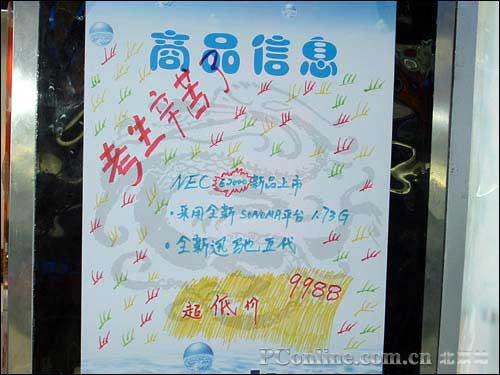 商品信息
考生辛苦了
NEC E2000新品上市
·采用全新SONOMA平台 1.73G
·全新迅驰五代
超低价 9988
PConline.com.cn 北京站